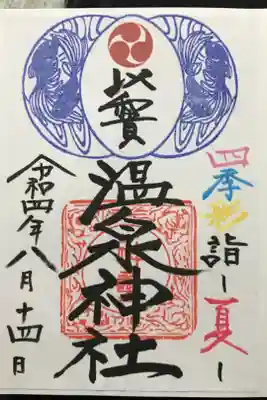 四季彩詣
-夏-
温泉神社
令和四年八月十四日